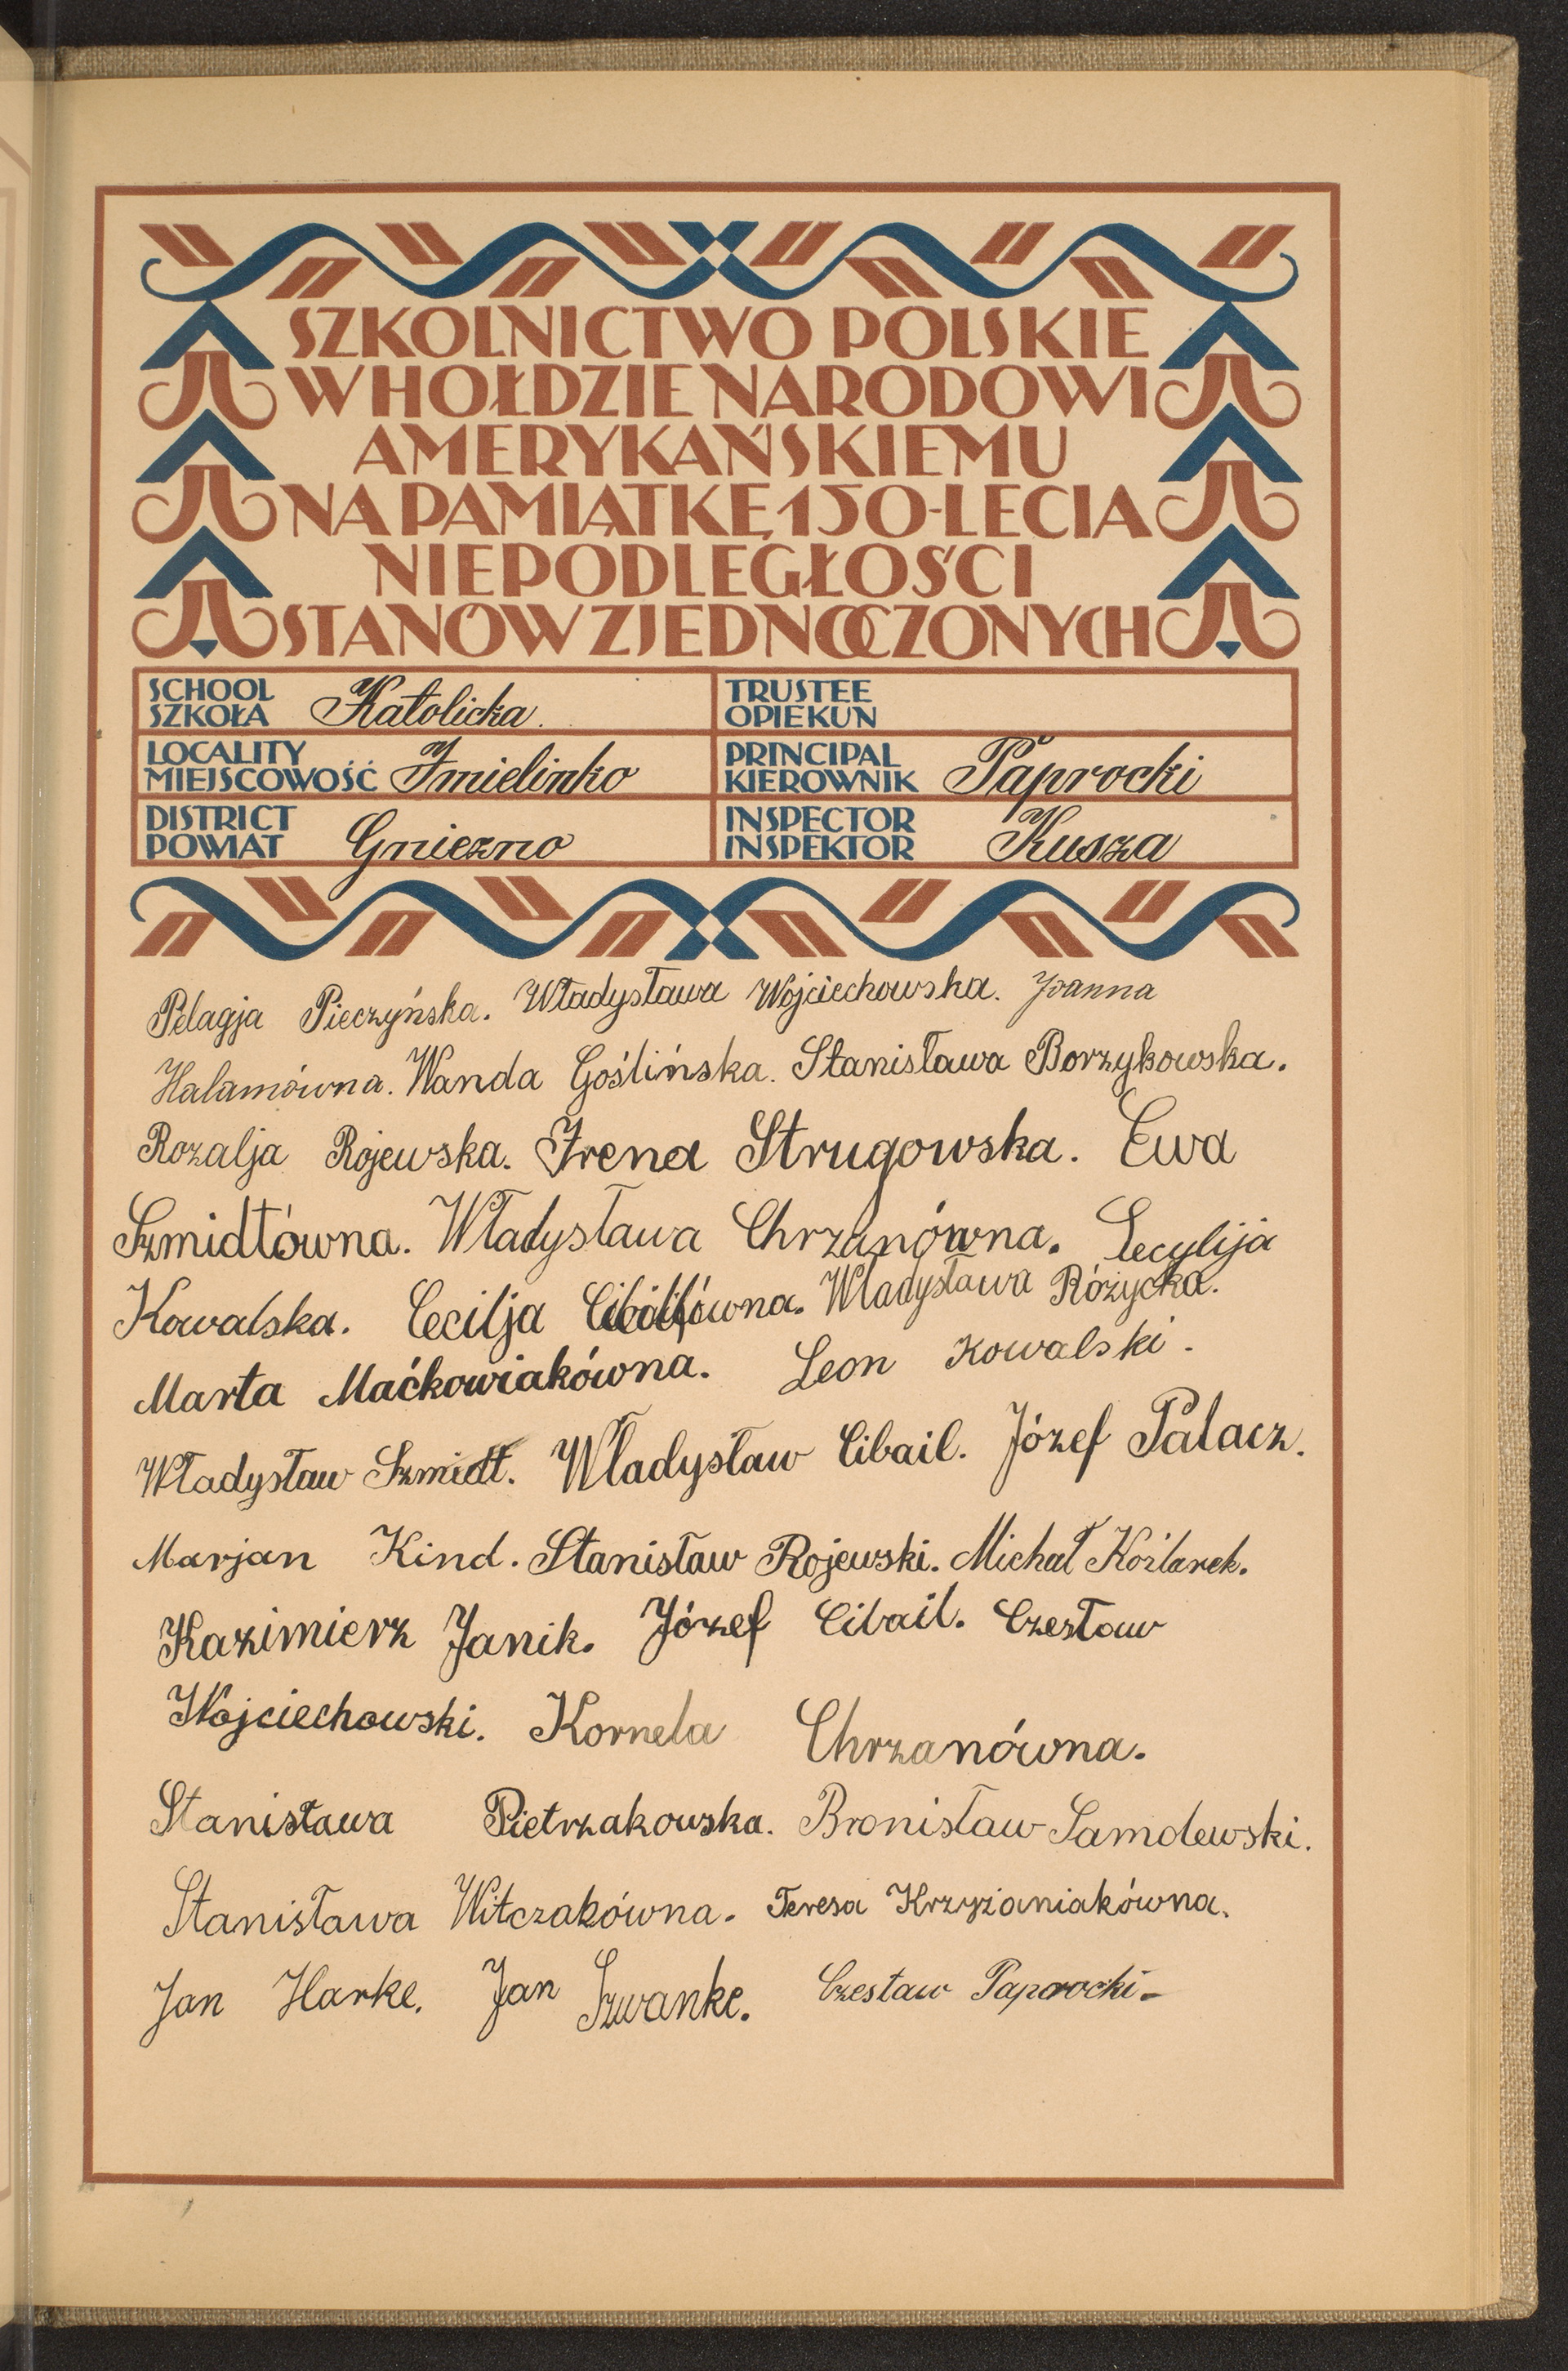 SZKOLNICTWO POLSKIE
W HOŁDZIE NARODOWI
AMERYKAŃSKIEMU
NA PAMIĄTKĘ 150-LECIA
NIEPODLEGŁOŚCI
STANÓW ZJEDNOCZONYCH
SCHOOL
SZKOŁA Katolicka.
TRUSTEE
OPIEKUN
LOCALITY
MIEJSCOWOŚĆ Imielinko
PRINCIPAL
KIEROWNIK Paprocki
DISTRICT
POWIAT Gniezno
INSPECTOR
INSPEKTOR Kusza
Pelagja Pieczyńska. Władysława Wojciechowska. Joanna
Halamówna. Wanda Goślińska. Stanisława Borzykowska.
Rozalja Rojewska. Irena Strugowska. Ewa
Szmidtówna. Władysława Chrzanówna. Cecylija
Kowalska. Cecilja Władysława Różycka.
Marta Maćkowiakówna. Leon Kowalski.
Władysław Szmidt. Władysław Cibail. Józef Palacz.
Marjan Kind. Stanisław Rojewski. Michał Koźlarek.
Kazimierz Janik. Józef Cibail. Czesław
Wojciechowski. Kornela Chrzanówna.
Stanisława Pietrzakowska. Bronisław Samolewski.
Stanisława Witczakówna. Teresa Krzyżaniakówna.
Jan Harke. Jan Szwanke. Czesław Paprocki-